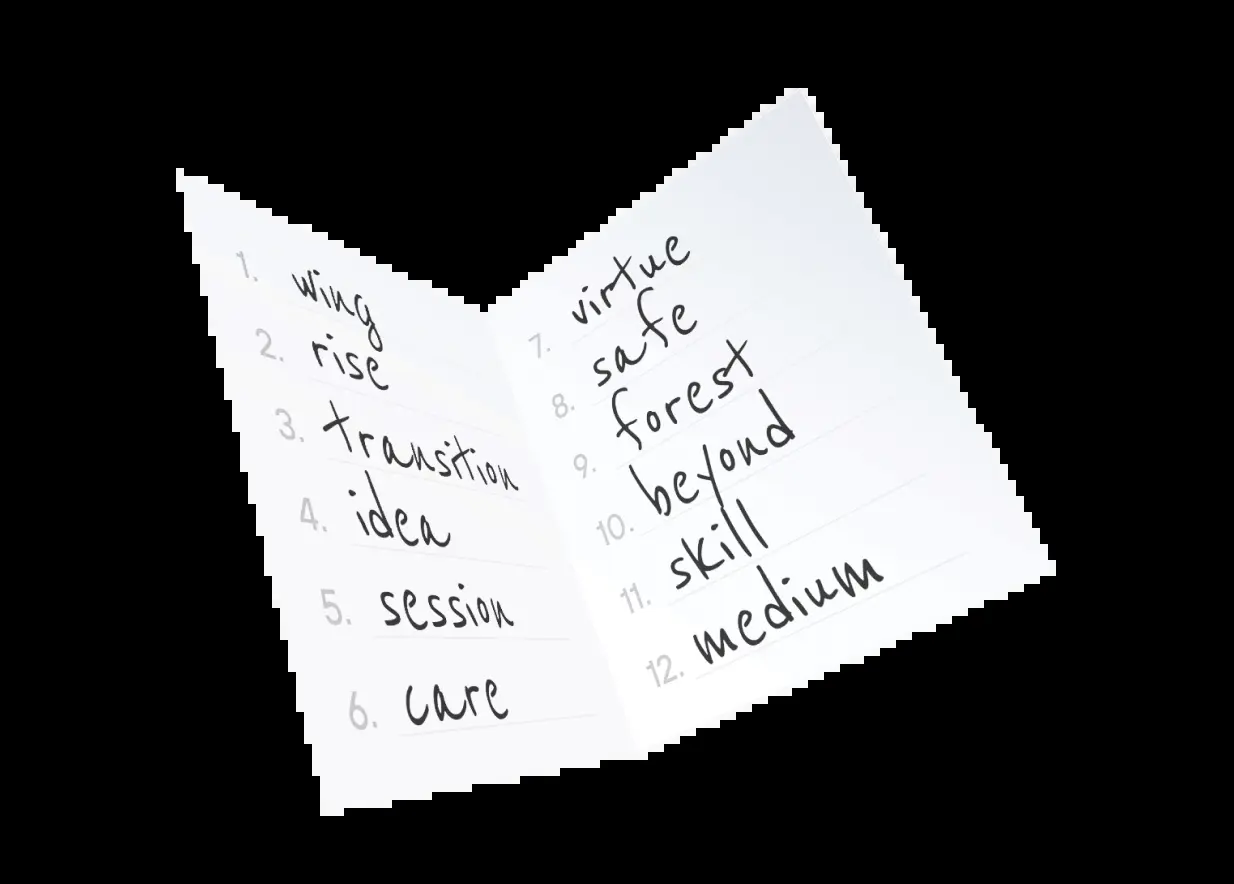 1. wing
2. rise
3. transition
4. idea
5. session
6. care
7. virtue
8. safe
9. forest
10. beyond
11. skill
12. medium